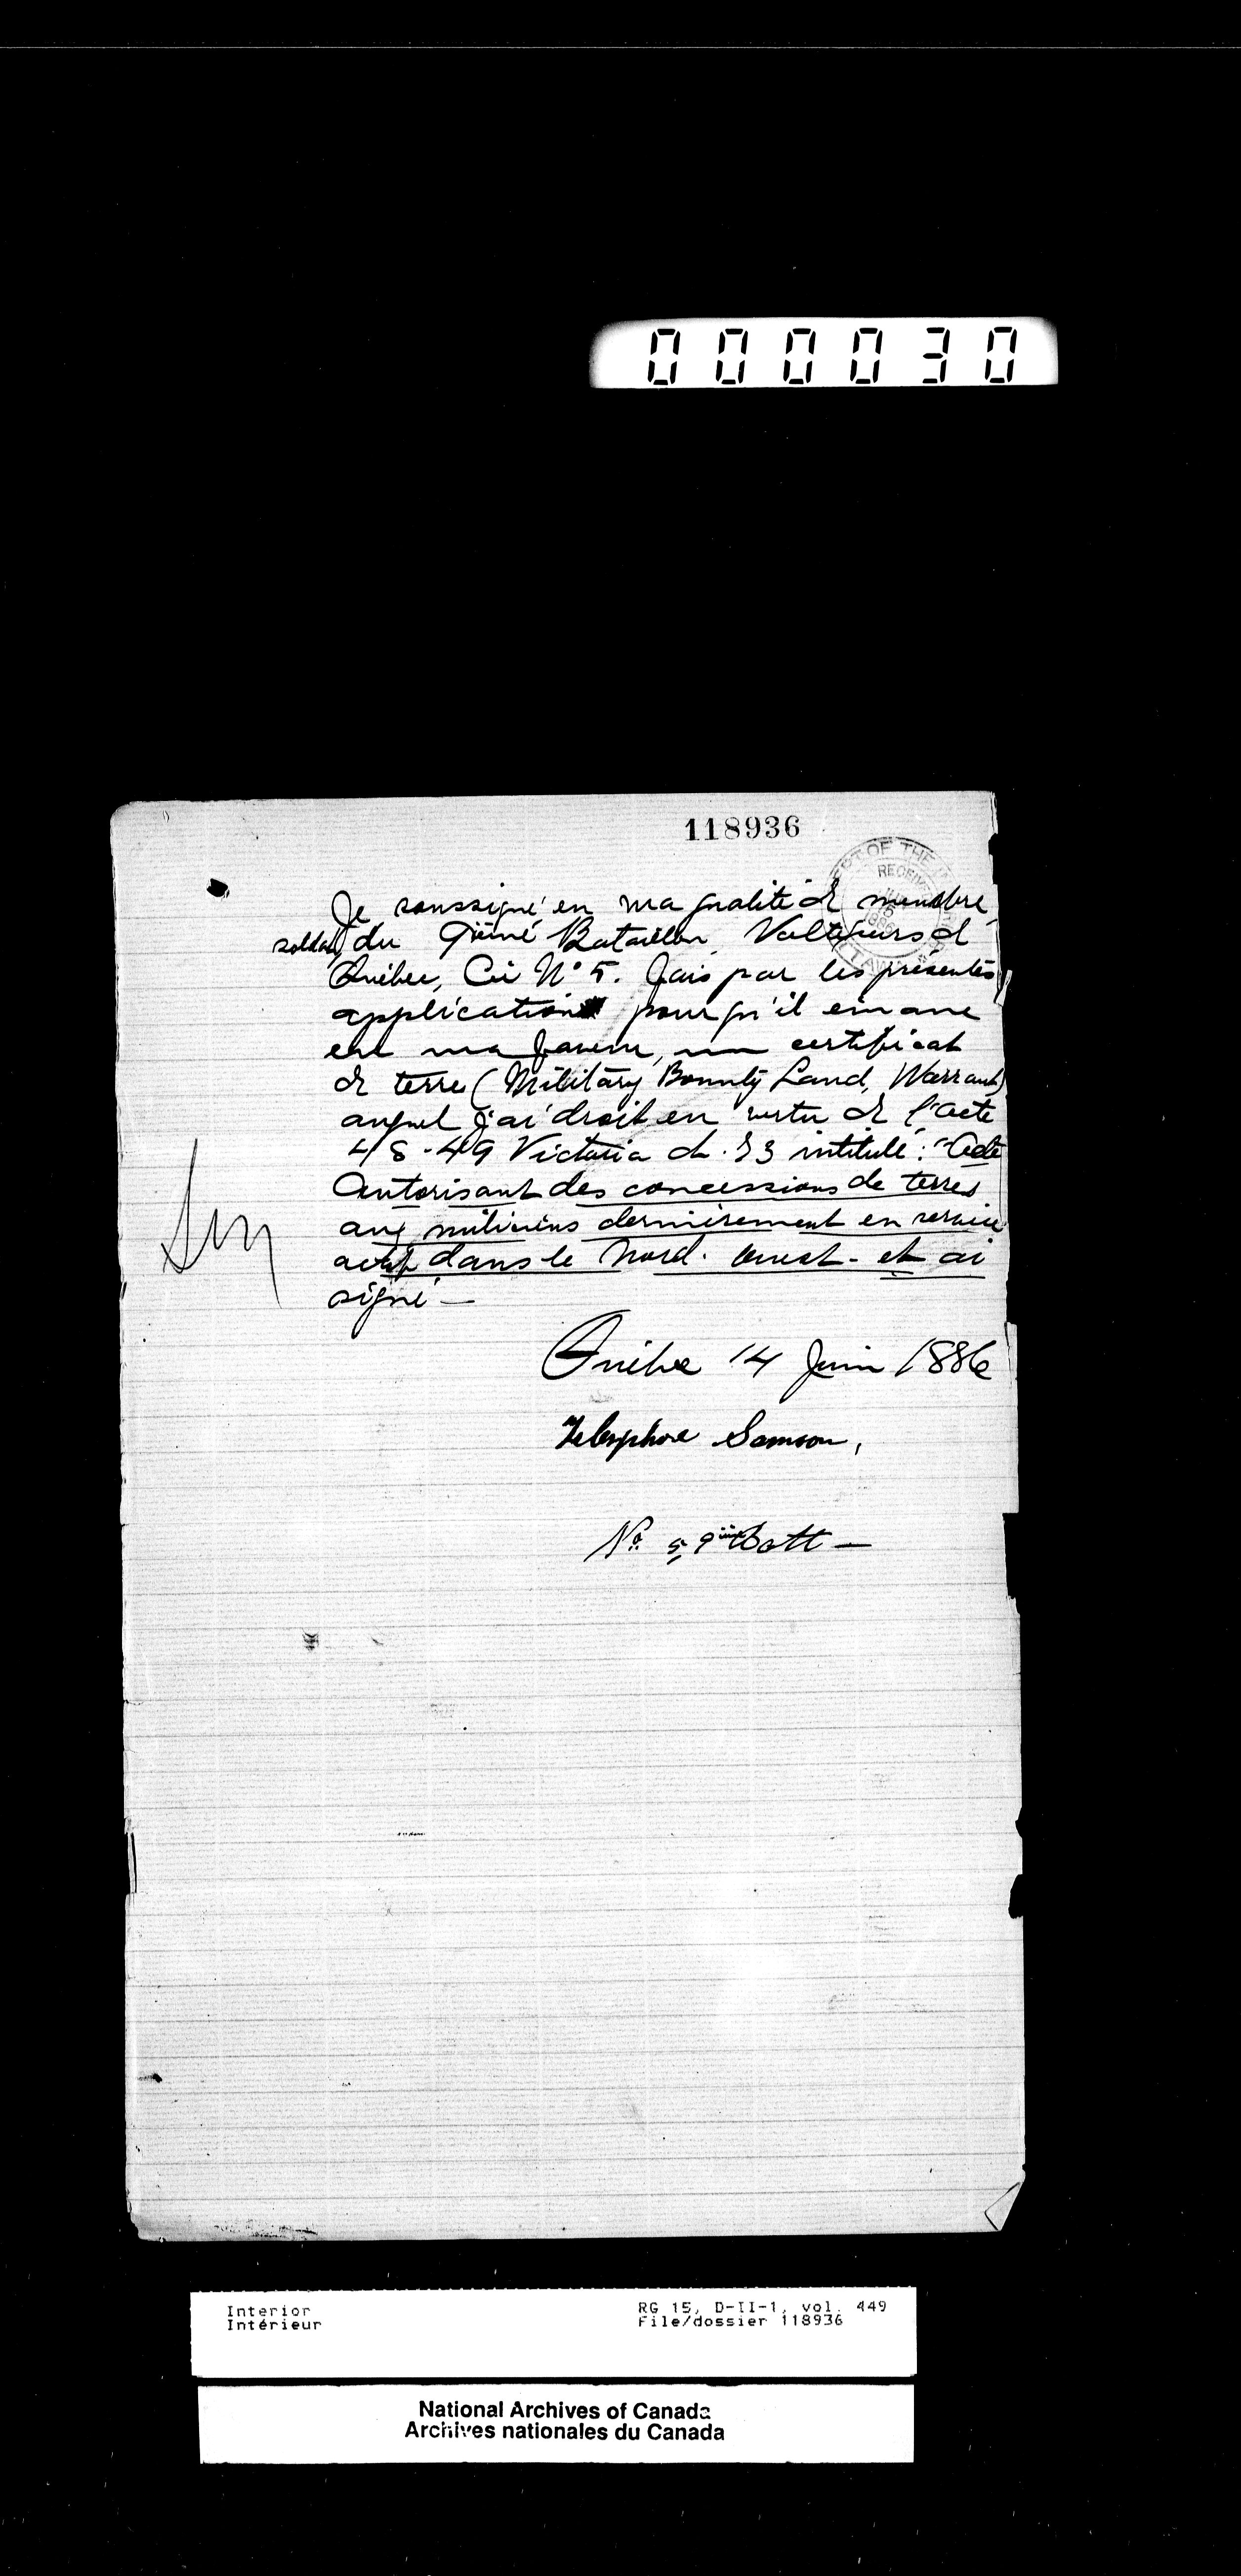 000030
118936
DEPT OF THE INTERIOR
RECEIVED
1886
OTTAWA
Je soussigné en ma qualité de membre
soldat du 9ième Bataillon Voltigeurs de
Québec, Cie No 5. fais par les présentes
application pour qu'il émane
en ma faveur, un certificat
de terre (Military Bounty Land, Warrant)
auquel j'ai droit en vertu de l'acte
48-49 Victoria ch. 73 intitulé: "Acte
Autorisant des concessions de terres
aux miliciens dernièrement en service
actif dans le Nord. Ouest - et ai
signé —
Québec 14 Juin 1886
Télesphore Samson,
No. 5, 9ième Batt —
Interior
Intérieur
RG 15, D-II-1, vol. 449
File/dossier 118936
National Archives of Canada
Archives nationales du Canada